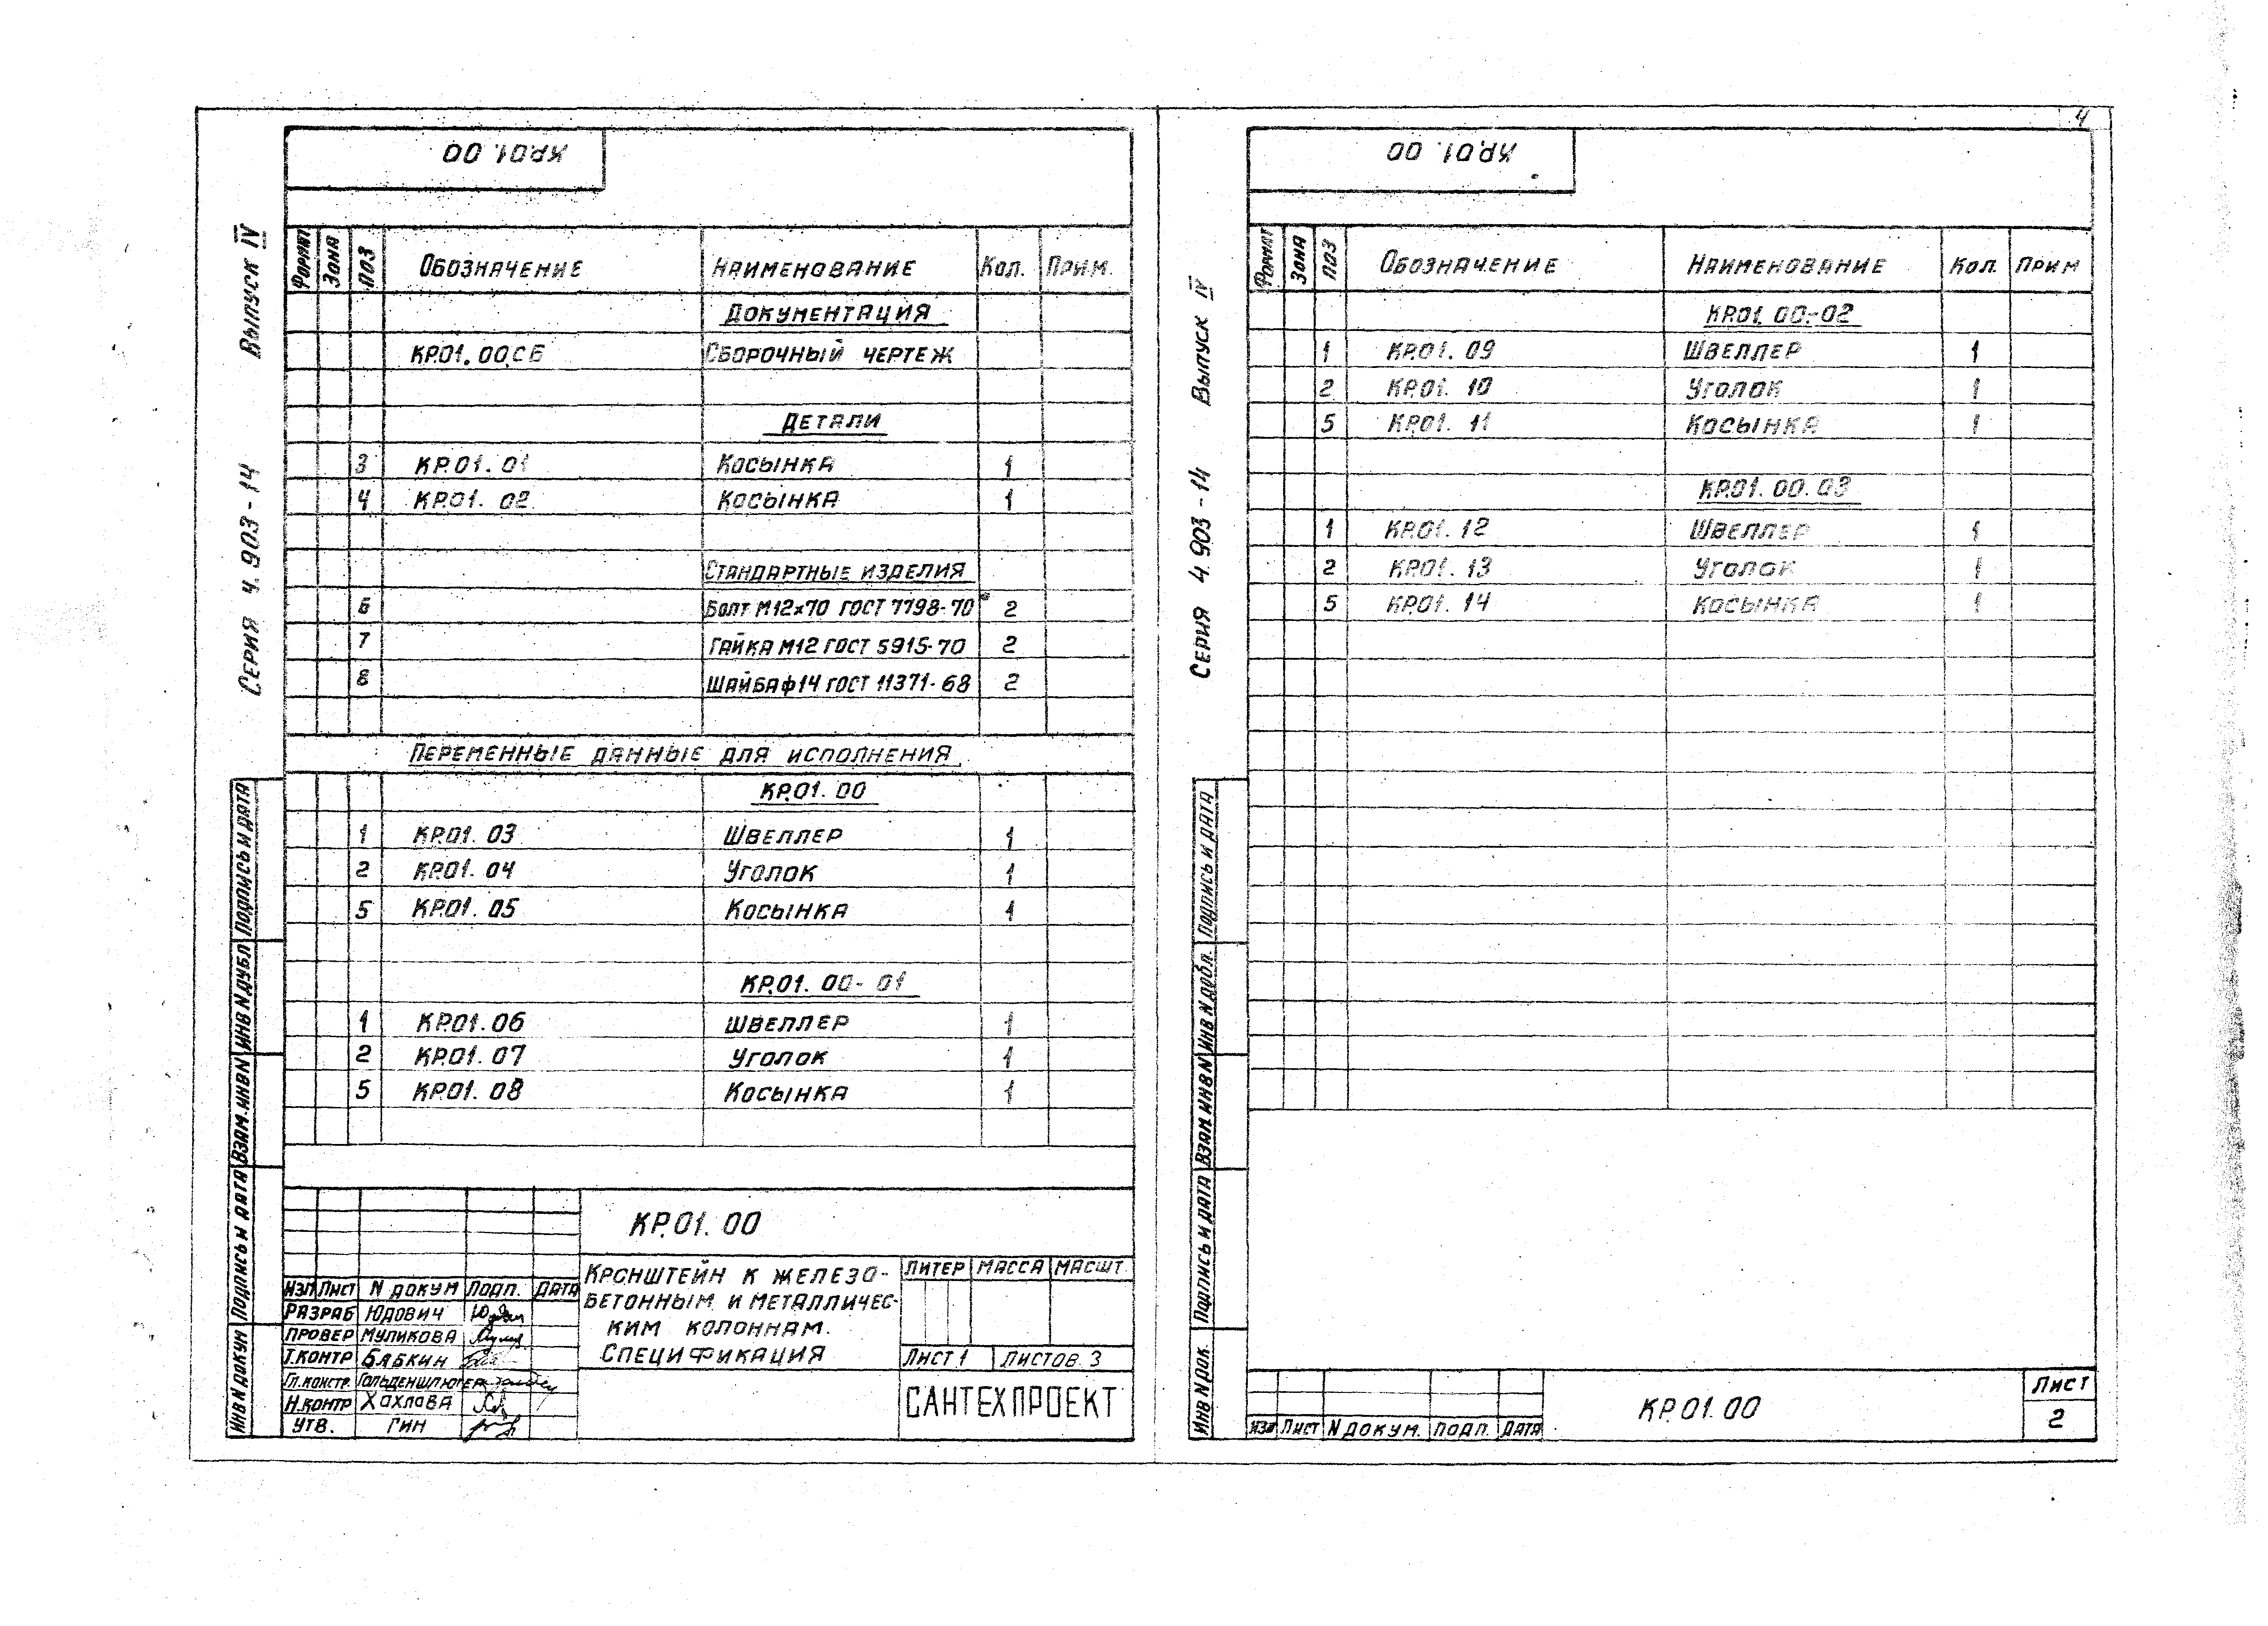 4
КР.01.00
Серия 4.903-14 Выпуск IV
Формат Зона Поз Обозначение Наименование Кол. Прим.
Документация
КР.01.00СБ Сборочный чертеж
Детали
3 КР.01.01 Косынка 1
4 КР.01.02 Косынка 1
Стандартные изделия
6 Болт М12х70 ГОСТ 7798-70 2
7 Гайка М12 ГОСТ 5915-70 2
8 Шайба ф14 ГОСТ 11371-68 2
Переменные данные для исполнения
КР.01.00
1 КР.01.03 Швеллер 1
2 КР.01.04 Уголок 1
5 КР.01.05 Косынка 1
КР.01.00-01
1 КР.01.06 Швеллер 1
2 КР.01.07 Уголок 1
5 КР.01.08 Косынка 1
Инв N докум Подпись и дата Взам. инв N Инв N дубл Подпись и дата
КР.01.00
Изм Лист N докум Подп. Дата
Разраб Юдович
Провер Муликова
Т.контр Бабкин
Гл.констр. Гольденшлюгер
Н.контр Хохлова
Утв. Гин
Кронштейн к железо-
бетонным и металличес-
ким колоннам.
Спецификация
Литер Масса Масшт.
Лист 1 Листов 3
САНТЕХПРОЕКТ
КР.01.00
Серия 4.903-14 Выпуск IV
Формат Зона Поз Обозначение Наименование Кол. Прим
КР.01.00-02
1 КР.01.09 Швеллер 1
2 КР.01.10 Уголок 1
5 КР.01.11 Косынка 1
КР.01.00.03
1 КР.01.12 Швеллер 1
2 КР.01.13 Уголок 1
5 КР.01.14 Косынка 1
Инв N док. Подпись и дата Взам. инв N Инв N добл. Подпись и дата
Изм Лист N докум. Подп. Дата
КР.01.00
Лист
2